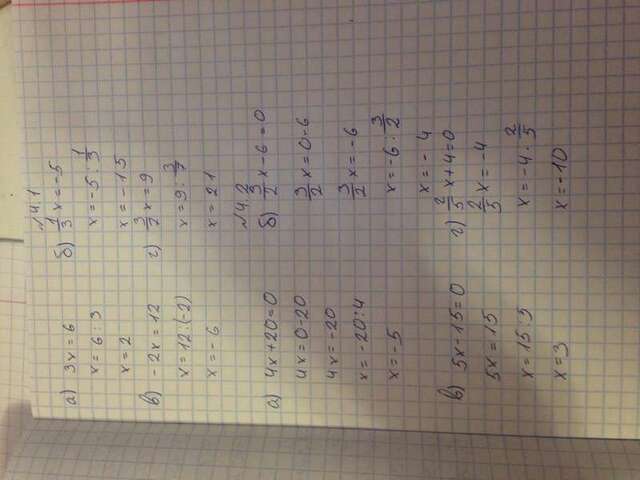 №4.1
а) 3x = 6
x = 6 : 3
x = 2
б) 1/3 x = -5
x = -5 : 1/3
x = -15
в) -2x = 12
x = 12 : (-2)
x = -6
г) 3/7 x = 9
x = 9 : 3/7
x = 21
№4.2
а) 4x + 20 = 0
4x = 0 - 20
4x = -20
x = -20 : 4
x = -5
б) 3/2 x - 6 = 0
3/2 x = 0 - 6
3/2 x = -6
x = -6 : 3/2
x = - 4
в) 5x - 15 = 0
5x = 15
x = 15 : 5
x = 3
г) 2/5 x + 4 = 0
2/5 x = -4
x = -4 : 2/5
x = -10